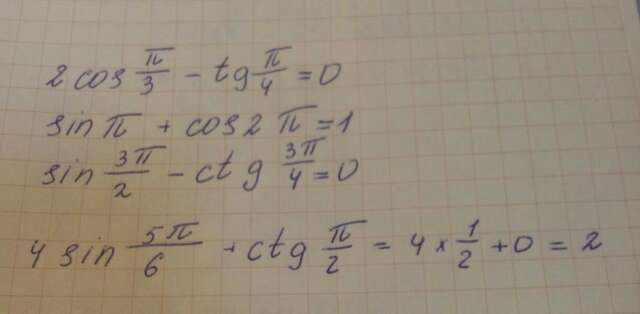 2 cos π/3 - tg π/4 = 0
sin π + cos 2π = 1
sin 3π/2 - ctg 3π/4 = 0
4 sin 5π/6 + ctg π/2 = 4 × 1/2 + 0 = 2